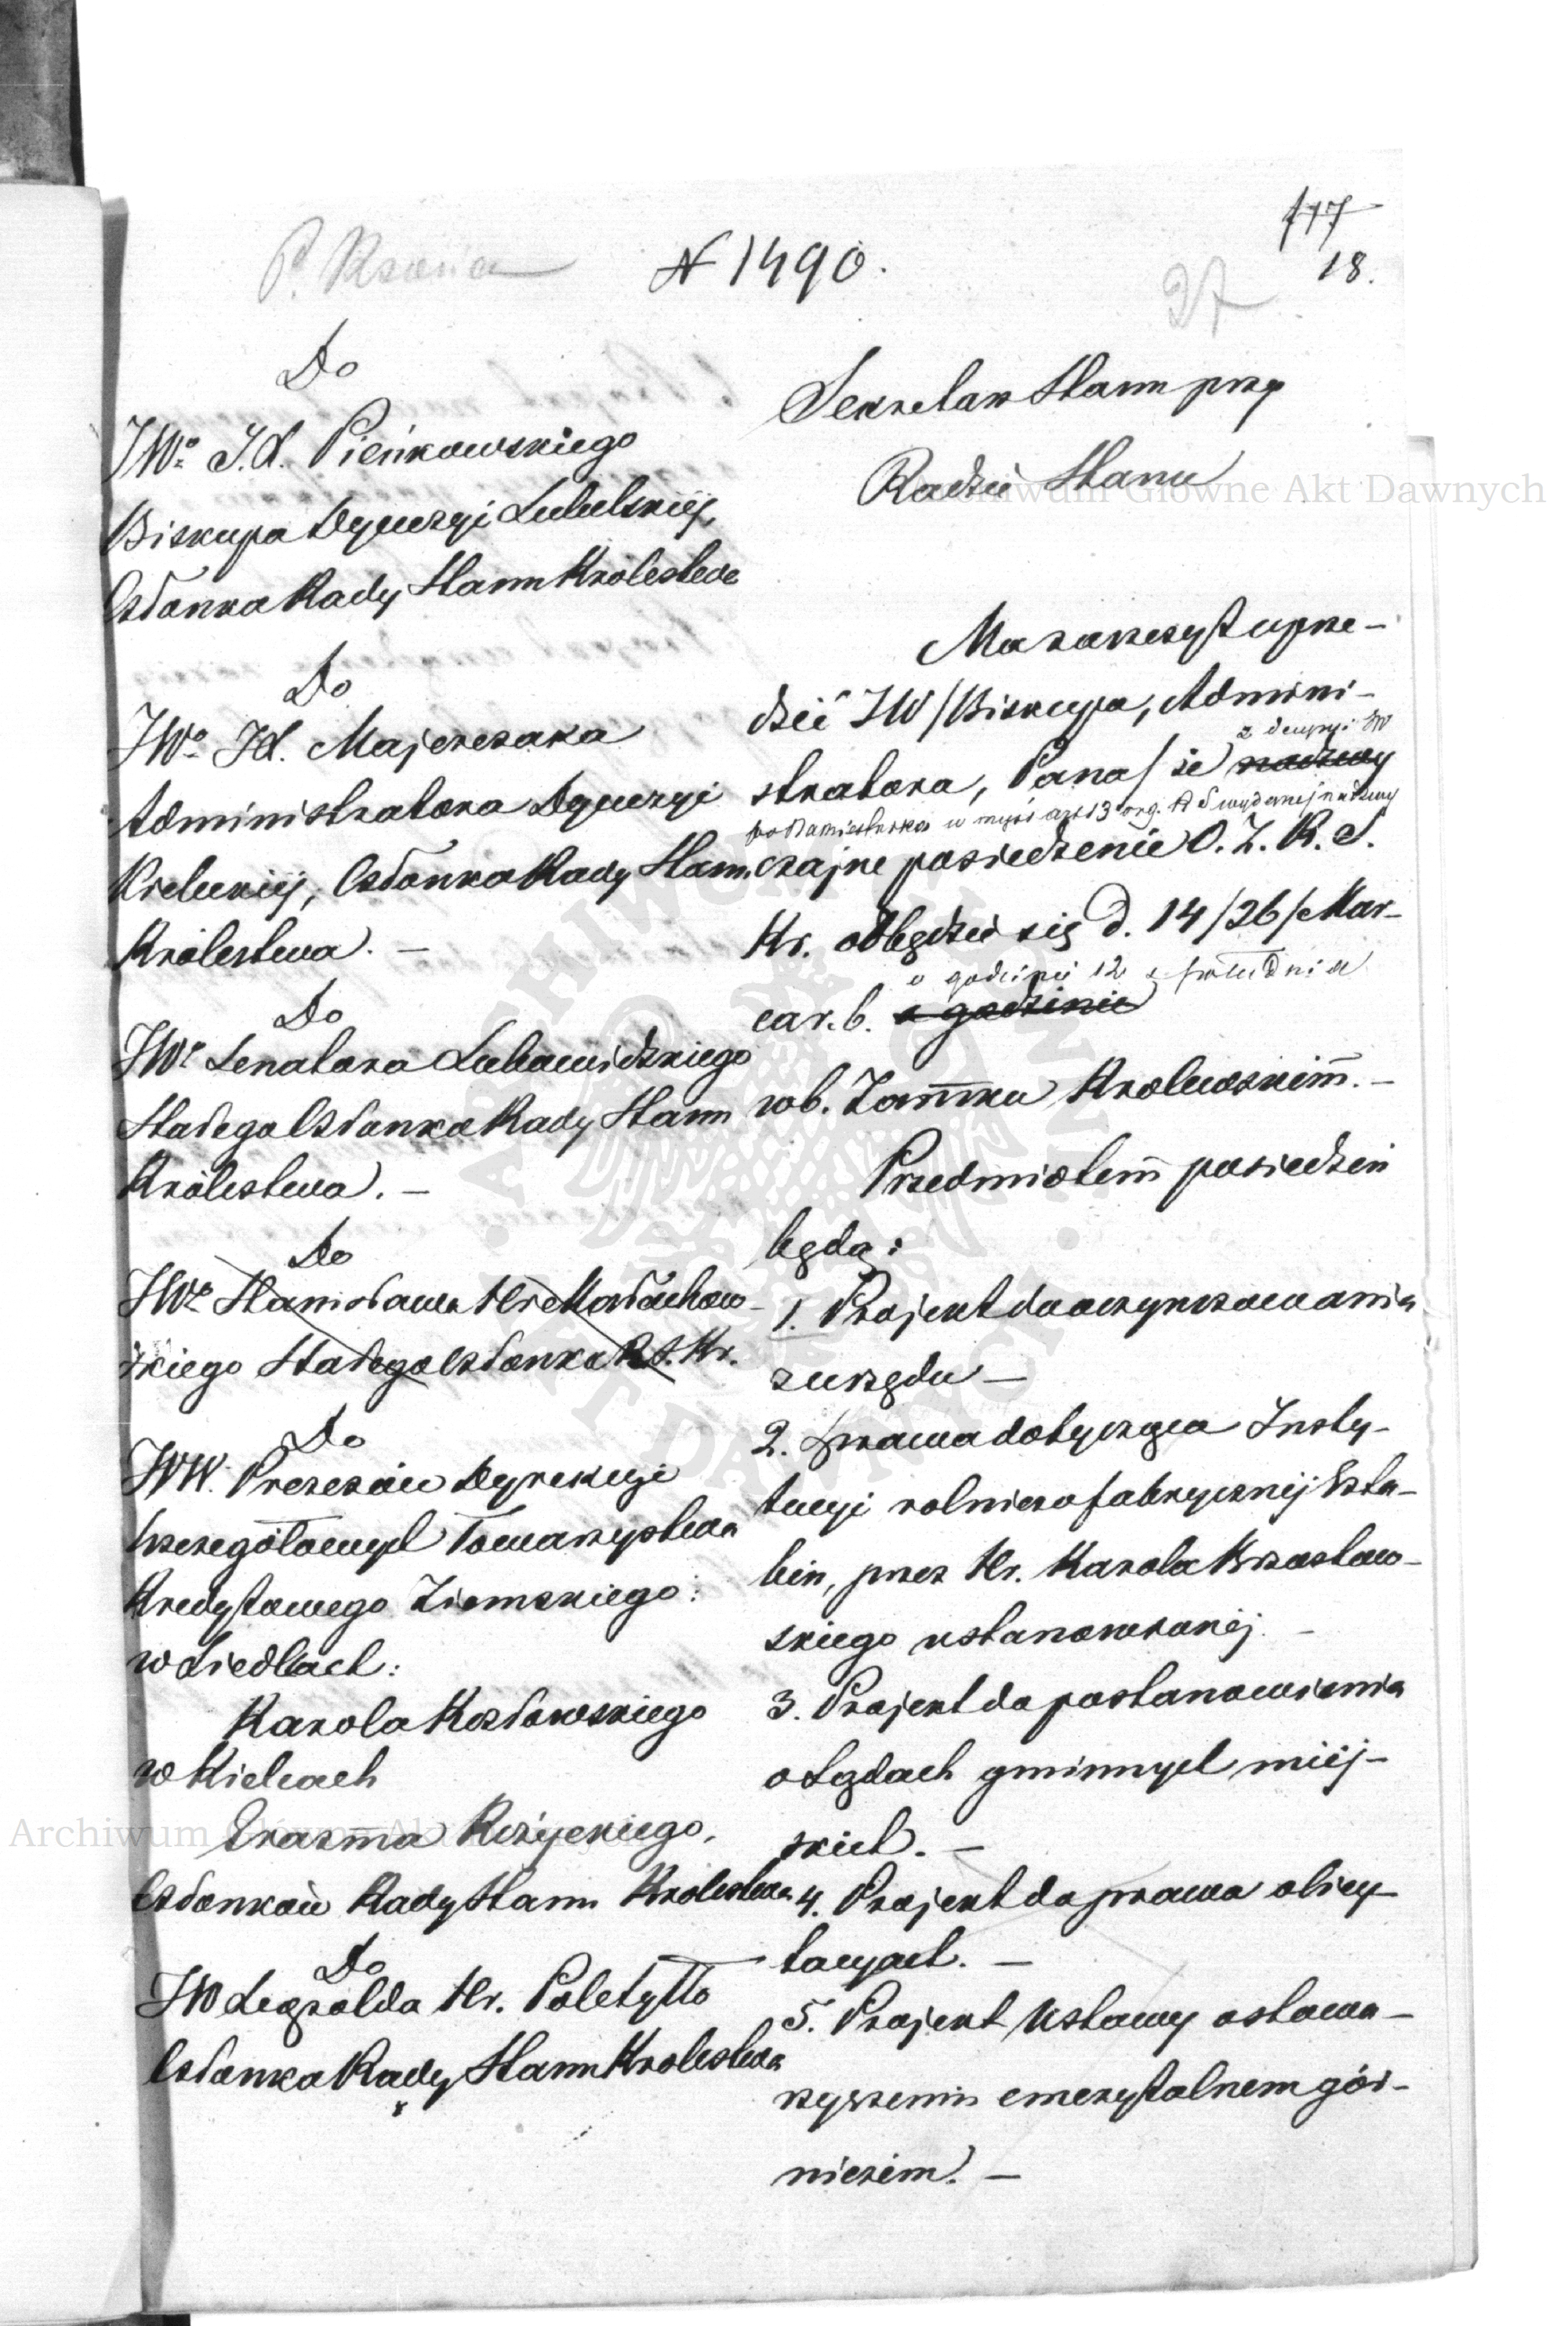 N 1490.
117
18.
27
Do
JWo J.X. Pieńkowskiego
Biskupa Dyecezyi Lubelskiej,
Członka Rady Stanu Królestwa
Do
JWo JX. Majerczaka
Administratora Dyecezyi
Kieleckiej, Członka Rady Stanu
Królestwa. —
Do
JWo Senatora Lubowidzkiego
Stałego Członka Rady Stanu
Królestwa. —
Do
JWo Stanisława Hr. Małachow-
skiego Stałego Członka R.S. Kr.
Do
JWW. Prezesów Dyrekcyi
Szczegółowych Towarzystwa
Kredytowego Ziemskiego:
w Siedlcach:
Karola Kozłowskiego
w Kielcach
Erazma Różyckiego,
Członków Rady Stanu Królestwa
Do
JW Leopolda Hr. Poletyłło
Członka Rady Stanu Królestwa
Sekretarz Stanu przy
Radzie Stanu
Ma zaszczyt uprze-
dzić JW /Biskupa, Admini-
z decyzyi JW
stratora, Pana/ że nadzwy
po Namiestnika w myśl art 13 org. R S wydanej nadzwy
czajne posiedzenie O. Z. R. S.
Kr. odbędzie się d. 14/26/ Mar-
o godzinie 12 z południa
ca r. b. o godzinie
w b. Zamku Królewskim. —
Przedmiotem posiedzeń
będą:
1. Projekt do oczynszowania
z urzędu —
2. Sprawa dotycząca Insty-
tucyi rolniczo fabrycznej Szta-
bin, przez Hr. Karola Brzostow-
skiego ustanowionej. —
3. Projekt do postanowienia
o Sądach gminnych miej-
skich. —
4. Projekt do prawa o licy-
tacyach. —
5. Projekt Ustawy o stowa-
rzyszeniu emerytalnem gór-
niczem. —
Archiwum Główne Akt Dawnych